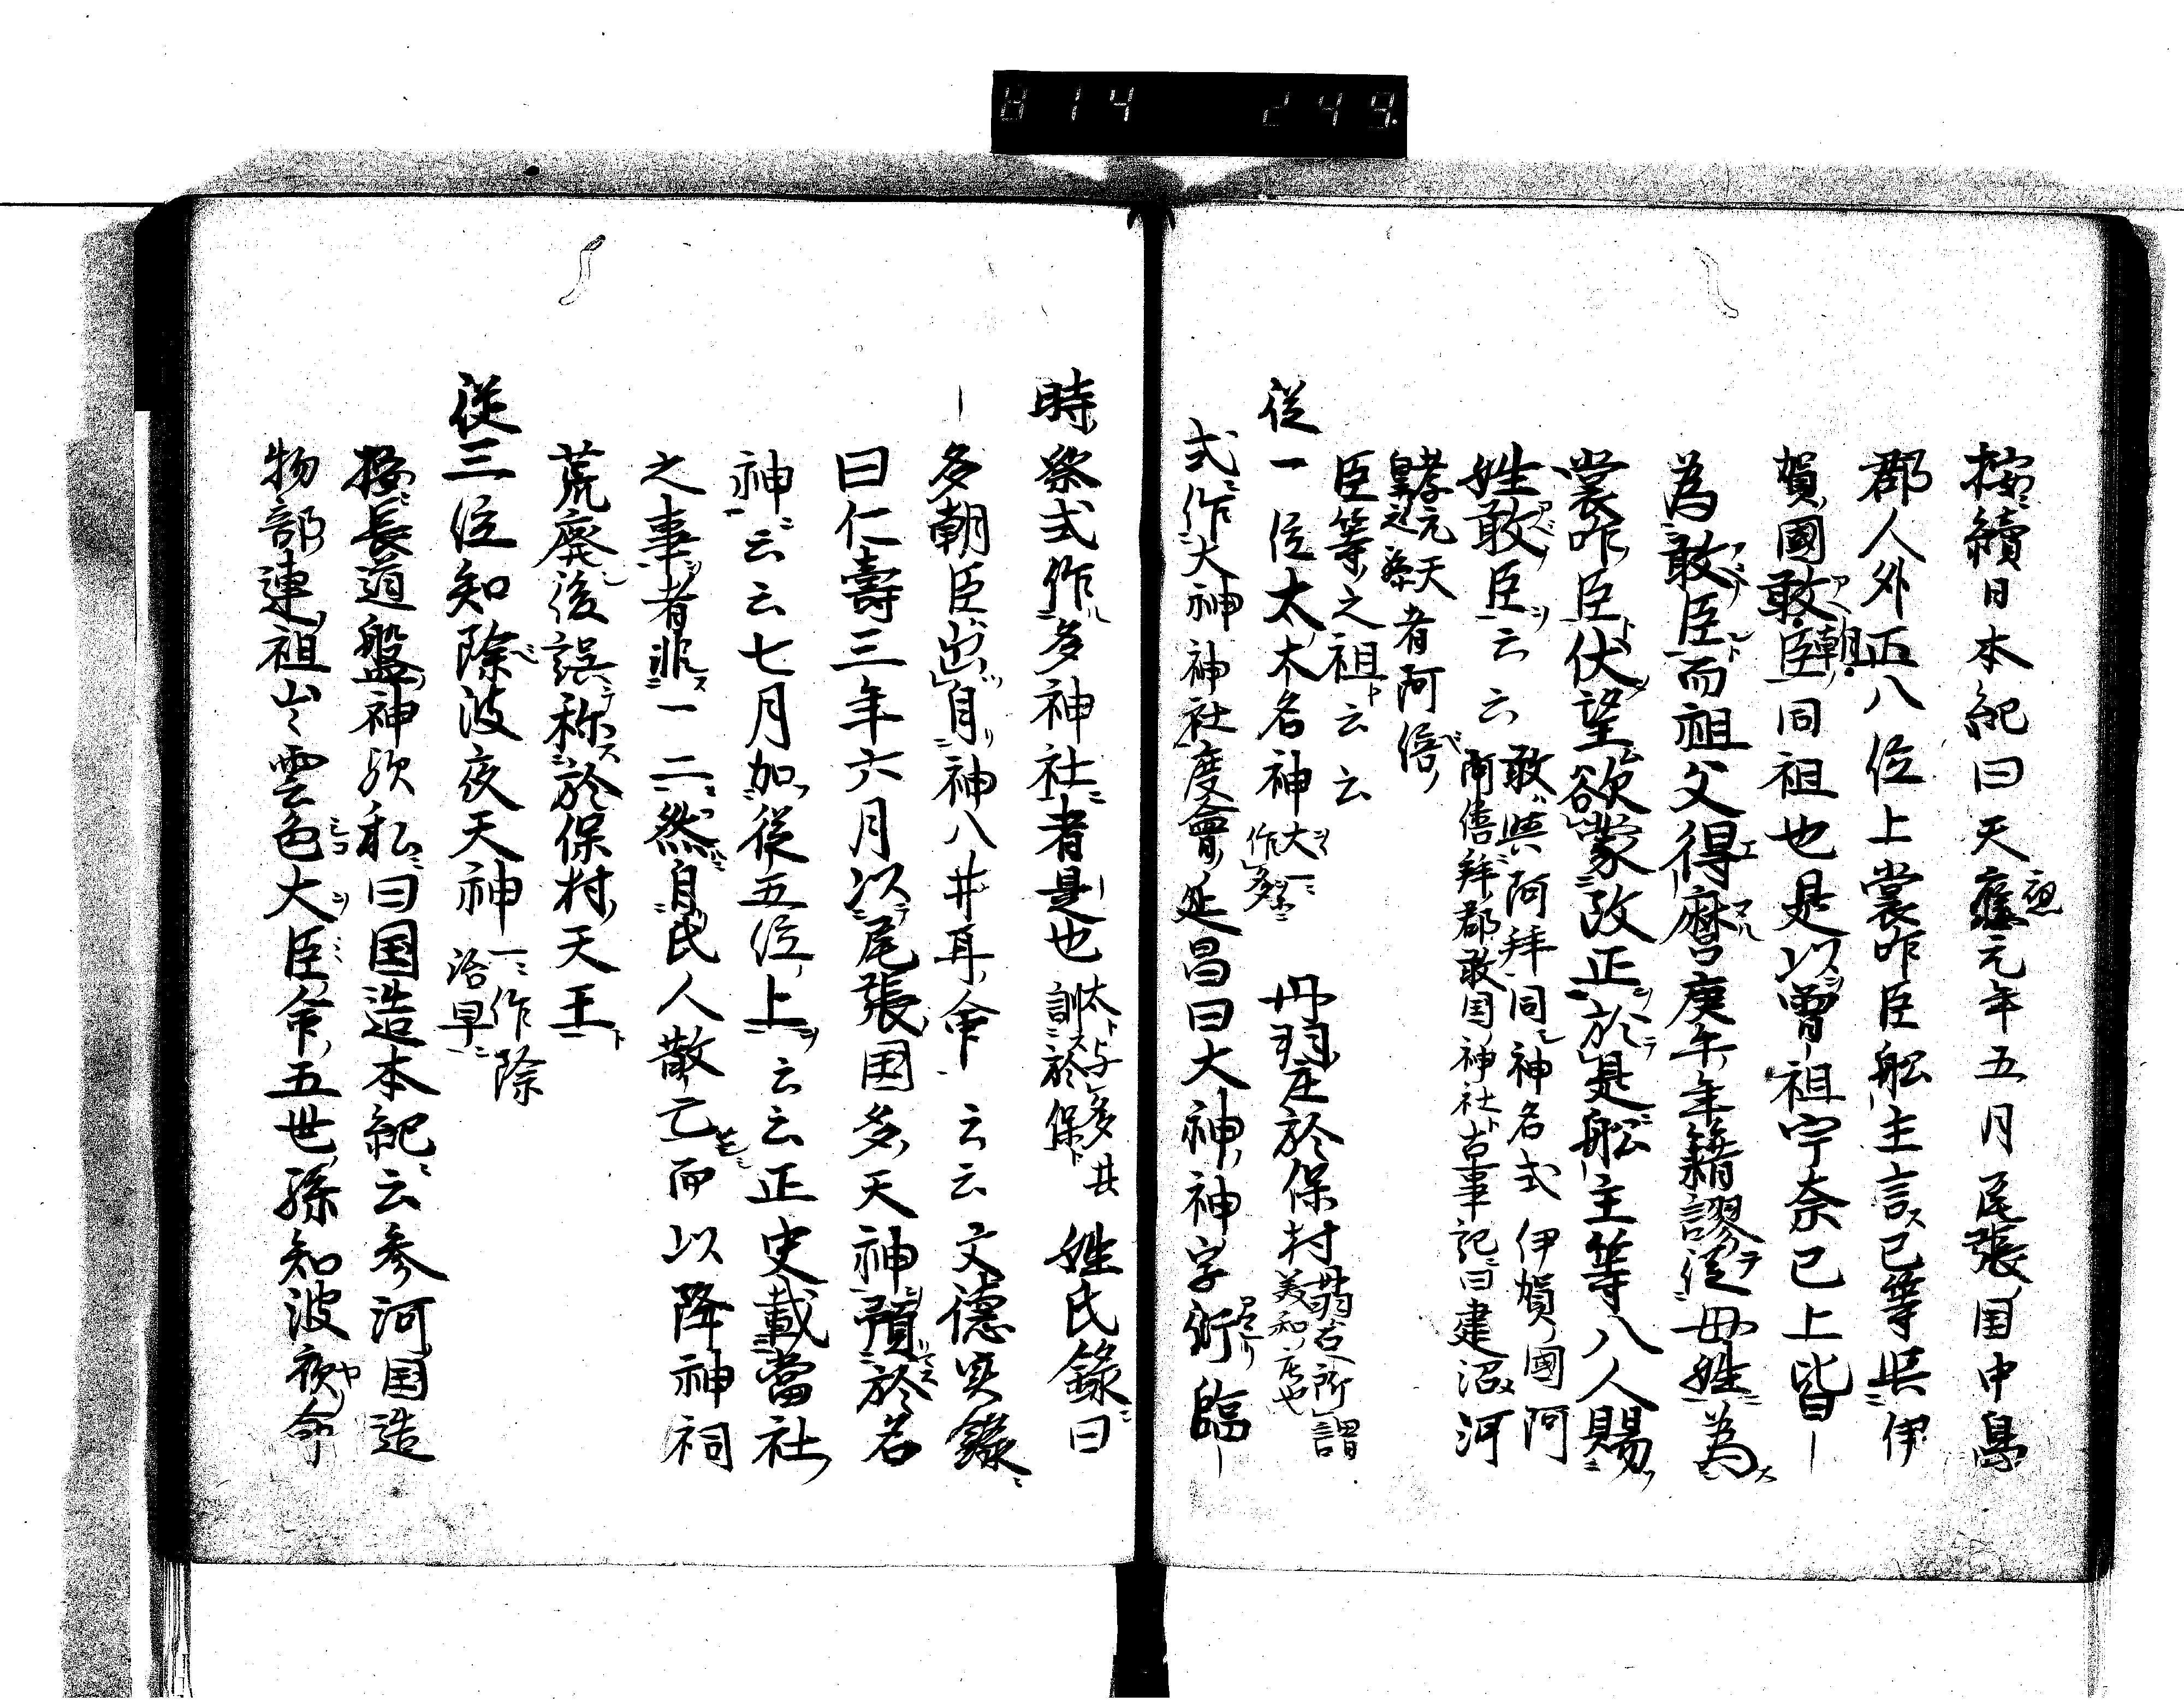 按續日本紀曰天應元年五月尾張国中島
郡人外正八位上裳咋臣舩主言己等與伊
賀國敢朝臣同祖也是以曽祖宇奈已上皆
為敢臣而祖父得麿庚午年籍謬従母姓為
裳咋臣伏望欲蒙改正於是舩主等八人賜
姓敢臣云云
敢與阿拜同神名式伊賀國阿
拜郡敢国神社古事記曰建沼河
孝元天皇之
者阿倍
臣等之祖云云
従一位太木名神
大一作多
丹羽庄於保村
所謂
美和庄也
式作大神神社度會延昌曰大神神字衍臨
時祭式作多神社者是也
太与多共
訓於保
姓氏錄曰
多朝臣出自神八井耳命云云文德実錄
曰仁壽三年六月以尾張国多天神預於名
神云云七月加従五位上云云正史載當社
之事者非一二然自氏人散亡而以降神祠
荒廃後誤称於保村天王
従三位知除波夜天神
一作除
治早
按長道盤神欤私曰国造本紀云参河国造
物部連祖出雲色大臣命五世孫知波夜命